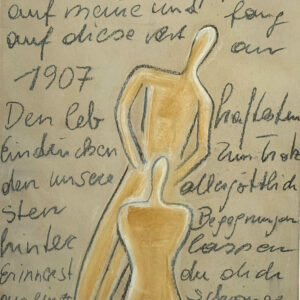 auf meine und fang
auf diese Art an
1907
Den leb haftesten
Eindrücken zum Trotz
den unsere allergöttlich
sten Begegnungen
hinter lassen
Erinnerst du dich